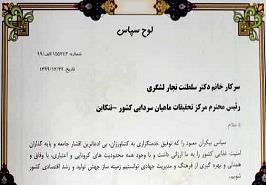 لوح سپاس
شماره: ۱۵۵۷۴۴/الف/۹۹
تاریخ: ۱۳۹۹/۱۲/۲۷
سرکار خانم دکتر سلطنت نجار لشگری
رئیس محترم مرکز تحقیقات ماهیان سردآبی کشور -تنکابن
با سلام
سپاس بیکران معبود را که توفیق خدمتگزاری به کشاورزان، بی ادعاترین اقشار جامعه و پایه گذاران
امنیت غذایی کشور را به ما ارزانی داشت و با وجود همه محدودیت های کرونایی و اعتباری، با وفاق و
همدلی و بهره گیری از فرهنگ و مدیریت جهادی توانستیم زمینه ساز جهش تولید و رشد اقتصادی کشور
شویم.